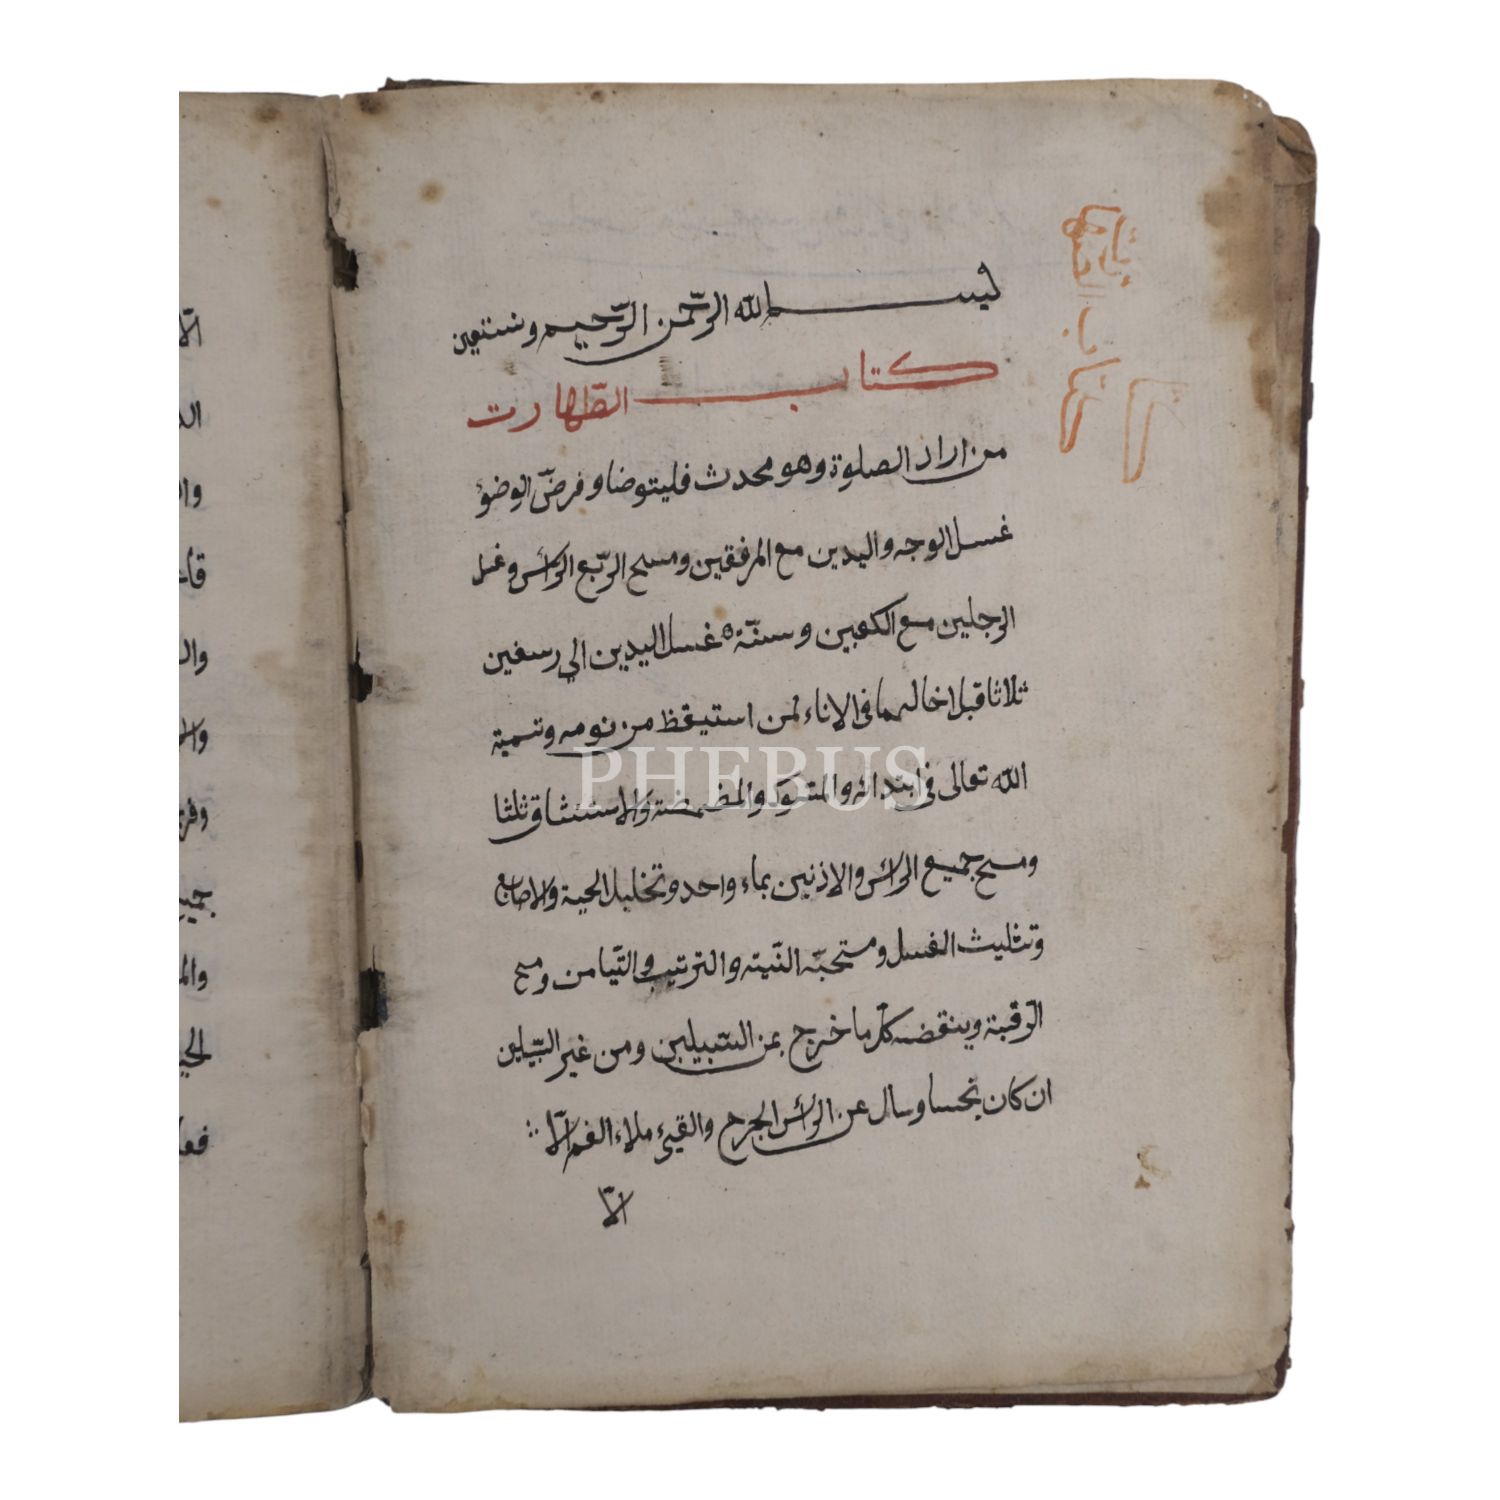 بسم الله الرّحمن الرّحيم وستعين
كتاب الطّهارت
من اراد الصلوة وهو محدث فليتوضا وفرض الوضؤ
غسل الوجه واليدين مع المرفقين ومسح الرّبع الرائس وغسل
الرجلين مع الكعبين وسنّة غسل اليدين الي رسغين
ثلاثا قبل اخالهما في الاناء لمن استيقظ من نومه وتسمية
الله تعالى في ابتدائه والمتسوك والمضمضة والاستنثاق ثلثا
ومسح جميع الرائس والاذنين بماء واحد وتخليل الحية والاصابع
وتثليث الغسل ومستحبّه النّيته والترتيب والتّيامن ومسح
الرّقبة وينقضه كلّ ما خرج من السّبيلين ومن غير السّبيلين
ان كان نجسا وسال عن الرائس الجرح والقيئ ملاء الفم الاّ
الاّ
PHEBUS
الاّ
وال
وال
جميع
وال
فعل